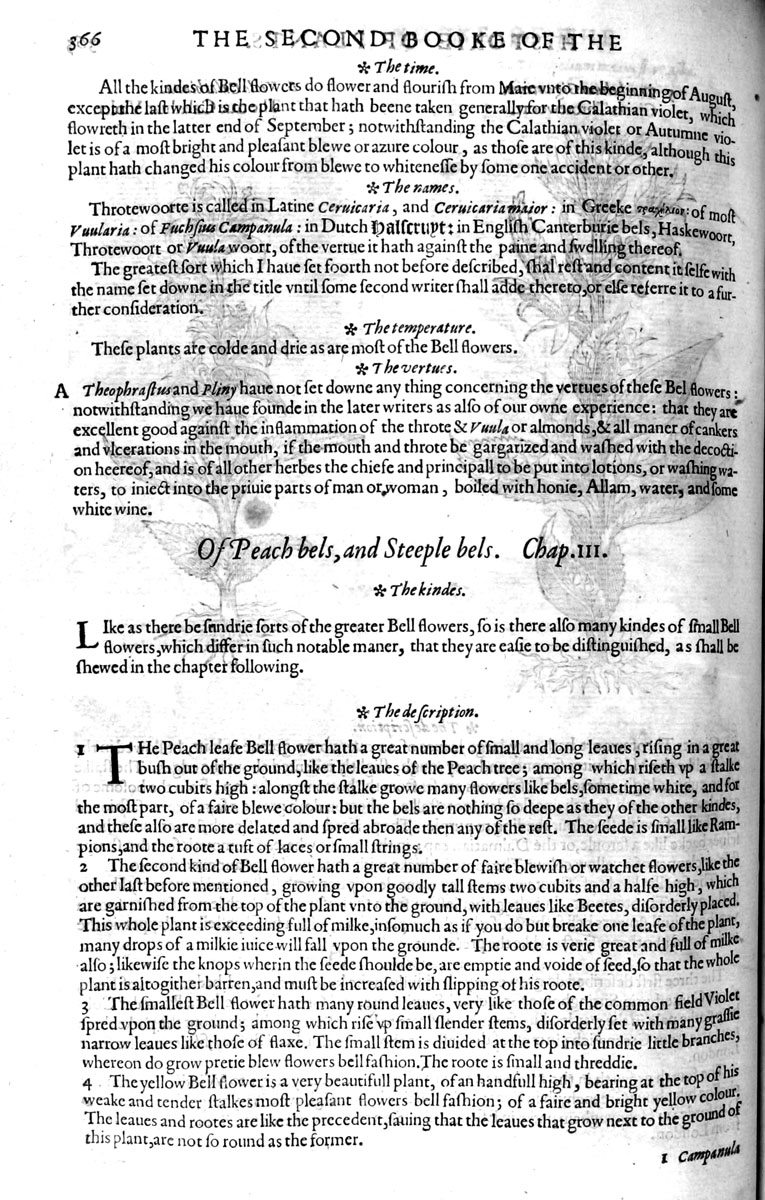 366 THE SECOND BOOKE OF THE
✻ The time.
All the kindes of Bell flowers do flower and flouriſh from Maie vnto the beginning of Auguſt,
except the laſt which is the plant that hath beene taken generally for the Calathian violet, which
flowreth in the latter end of September; notwithſtanding the Calathian violet or Autumne vio-
let is of a moſt bright and pleaſant blewe or azure colour, as thoſe are of this kinde, although this
plant hath changed his colour from blewe to whiteneſſe by ſome one accident or other.
✻ The names.
Throtewoorte is called in Latine Ceruicaria, and Ceruicaria maior: in Greeke : of moſt
Vuularia: of Fuchſius Campanula: in Dutch Halſcruyt: in Engliſh Canterburie bels, Haskewoort,
Throtewoort or Vuula woort, of the vertue it hath againſt the paine and ſwelling thereof.
The greateſt ſort which I haue ſet foorth not before deſcribed, ſhal reſt and content it ſelfe with
the name ſet downe in the title vntil ſome ſecond writer ſhall adde thereto, or elſe referre it to a fur-
ther conſideration.
✻ The temperature.
Theſe plants are colde and drie as are moſt of the Bell flowers.
✻ The vertues.
A Theophraſtus and Pliny haue not ſet downe any thing concerning the vertues of theſe Bel flowers:
notwithſtanding we haue founde in the later writers as alſo of our owne experience: that they are
excellent good againſt the inflammation of the throte & Vuula or almonds, & all maner of cankers
and vlcerations in the mouth, if the mouth and throte be gargarized and waſhed with the decocti-
on heereof, and is of all other herbes the chiefe and principall to be put into lotions, or waſhing wa-
ters, to iniect into the priuie parts of man or woman, boiled with honie, Allam, water, and ſome
white wine.
Of Peach bels, and Steeple bels. Chap. III.
✻ The kindes.
LIke as there be ſundrie ſorts of the greater Bell flowers, ſo is there alſo many kindes of ſmall Bell
flowers, which differ in ſuch notable maner, that they are eaſie to be diſtinguiſhed, as ſhall be
ſhewed in the chapter following.
✻ The deſcription.
1 THe Peach leafe Bell flower hath a great number of ſmall and long leaues, riſing in a great
buſh out of the ground, like the leaues of the Peach tree; among which riſeth vp a ſtalke
two cubits high: alongſt the ſtalke growe many flowers like bels, ſometime white, and for
the moſt part, of a faire blewe colour: but the bels are nothing ſo deepe as they of the other kindes,
and theſe alſo are more delated and ſpred abroade then any of the reſt. The ſeede is ſmall like Ram-
pions, and the roote a tuft of laces or ſmall ſtrings.
2 The ſecond kind of Bell flower hath a great number of faire blewiſh or watchet flowers, like the
other laſt before mentioned, growing vpon goodly tall ſtems two cubits and a halfe high, which
are garniſhed from the top of the plant vnto the ground, with leaues like Beetes, diſorderly placed.
This whole plant is exceeding full of milke, inſomuch as if you do but breake one leafe of the plant,
many drops of a milkie iuice will fall vpon the grounde. The roote is verie great and full of milke
alſo; likewiſe the knops wherin the ſeede ſhoulde be, are emptie and voide of ſeed, ſo that the whole
plant is altogither barren, and muſt be increaſed with ſlipping of his roote.
3 The ſmalleſt Bell flower hath many round leaues, very like thoſe of the common field Violet
ſpred vpon the ground; among which riſe vp ſmall ſlender ſtems, diſorderly ſet with many graſſie
narrow leaues like thoſe of flaxe. The ſmall ſtem is diuided at the top into ſundrie little branches,
whereon do grow pretie blew flowers bell faſhion. The roote is ſmall and threddie.
4 The yellow Bell flower is a very beautifull plant, of an handfull high, bearing at the top of his
weake and tender ſtalkes moſt pleaſant flowers bell faſhion; of a faire and bright yellow colour.
The leaues and rootes are like the precedent, ſauing that the leaues that grow next to the ground of
this plant, are not ſo round as the former.
1 Campanula